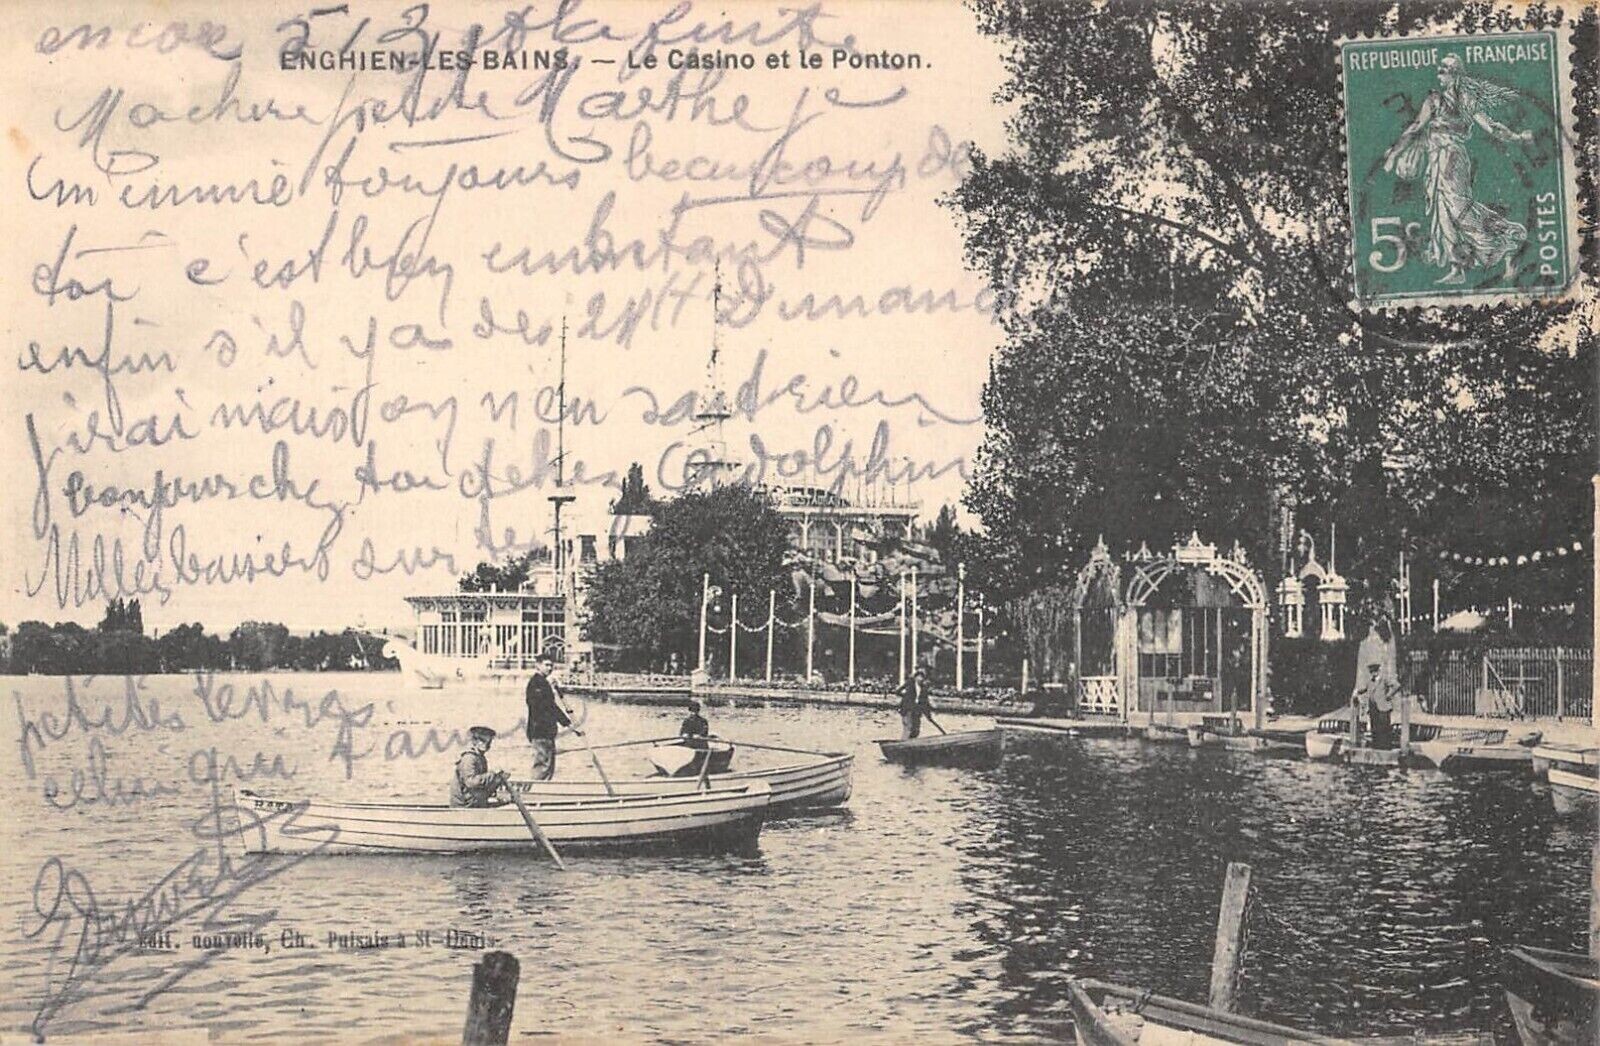 encore 513 et la fuite
ENGHIEN-LES-BAINS. — Le Casino et le Ponton.
Ma chere petite Marthe je
m'ennuie toujours beaucoup de
toi c'est bien
enfin s'il y a des 24H Dimanche
j'irai mais on n'en sait rien
bonjour chez toi et chez Adolphin
Milles baisers sur tes
petites levres.
celui qui t'aime
REPUBLIQUE FRANÇAISE
5c
POSTES
Edit. nouvelle, Ch. Puisais à St-Denis